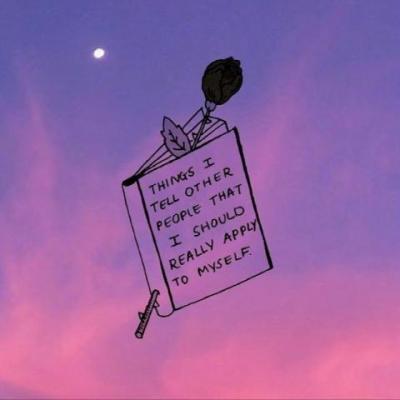 THINGS I
TELL OTHER
PEOPLE THAT
I SHOULD
REALLY APPLY
TO MYSELF.